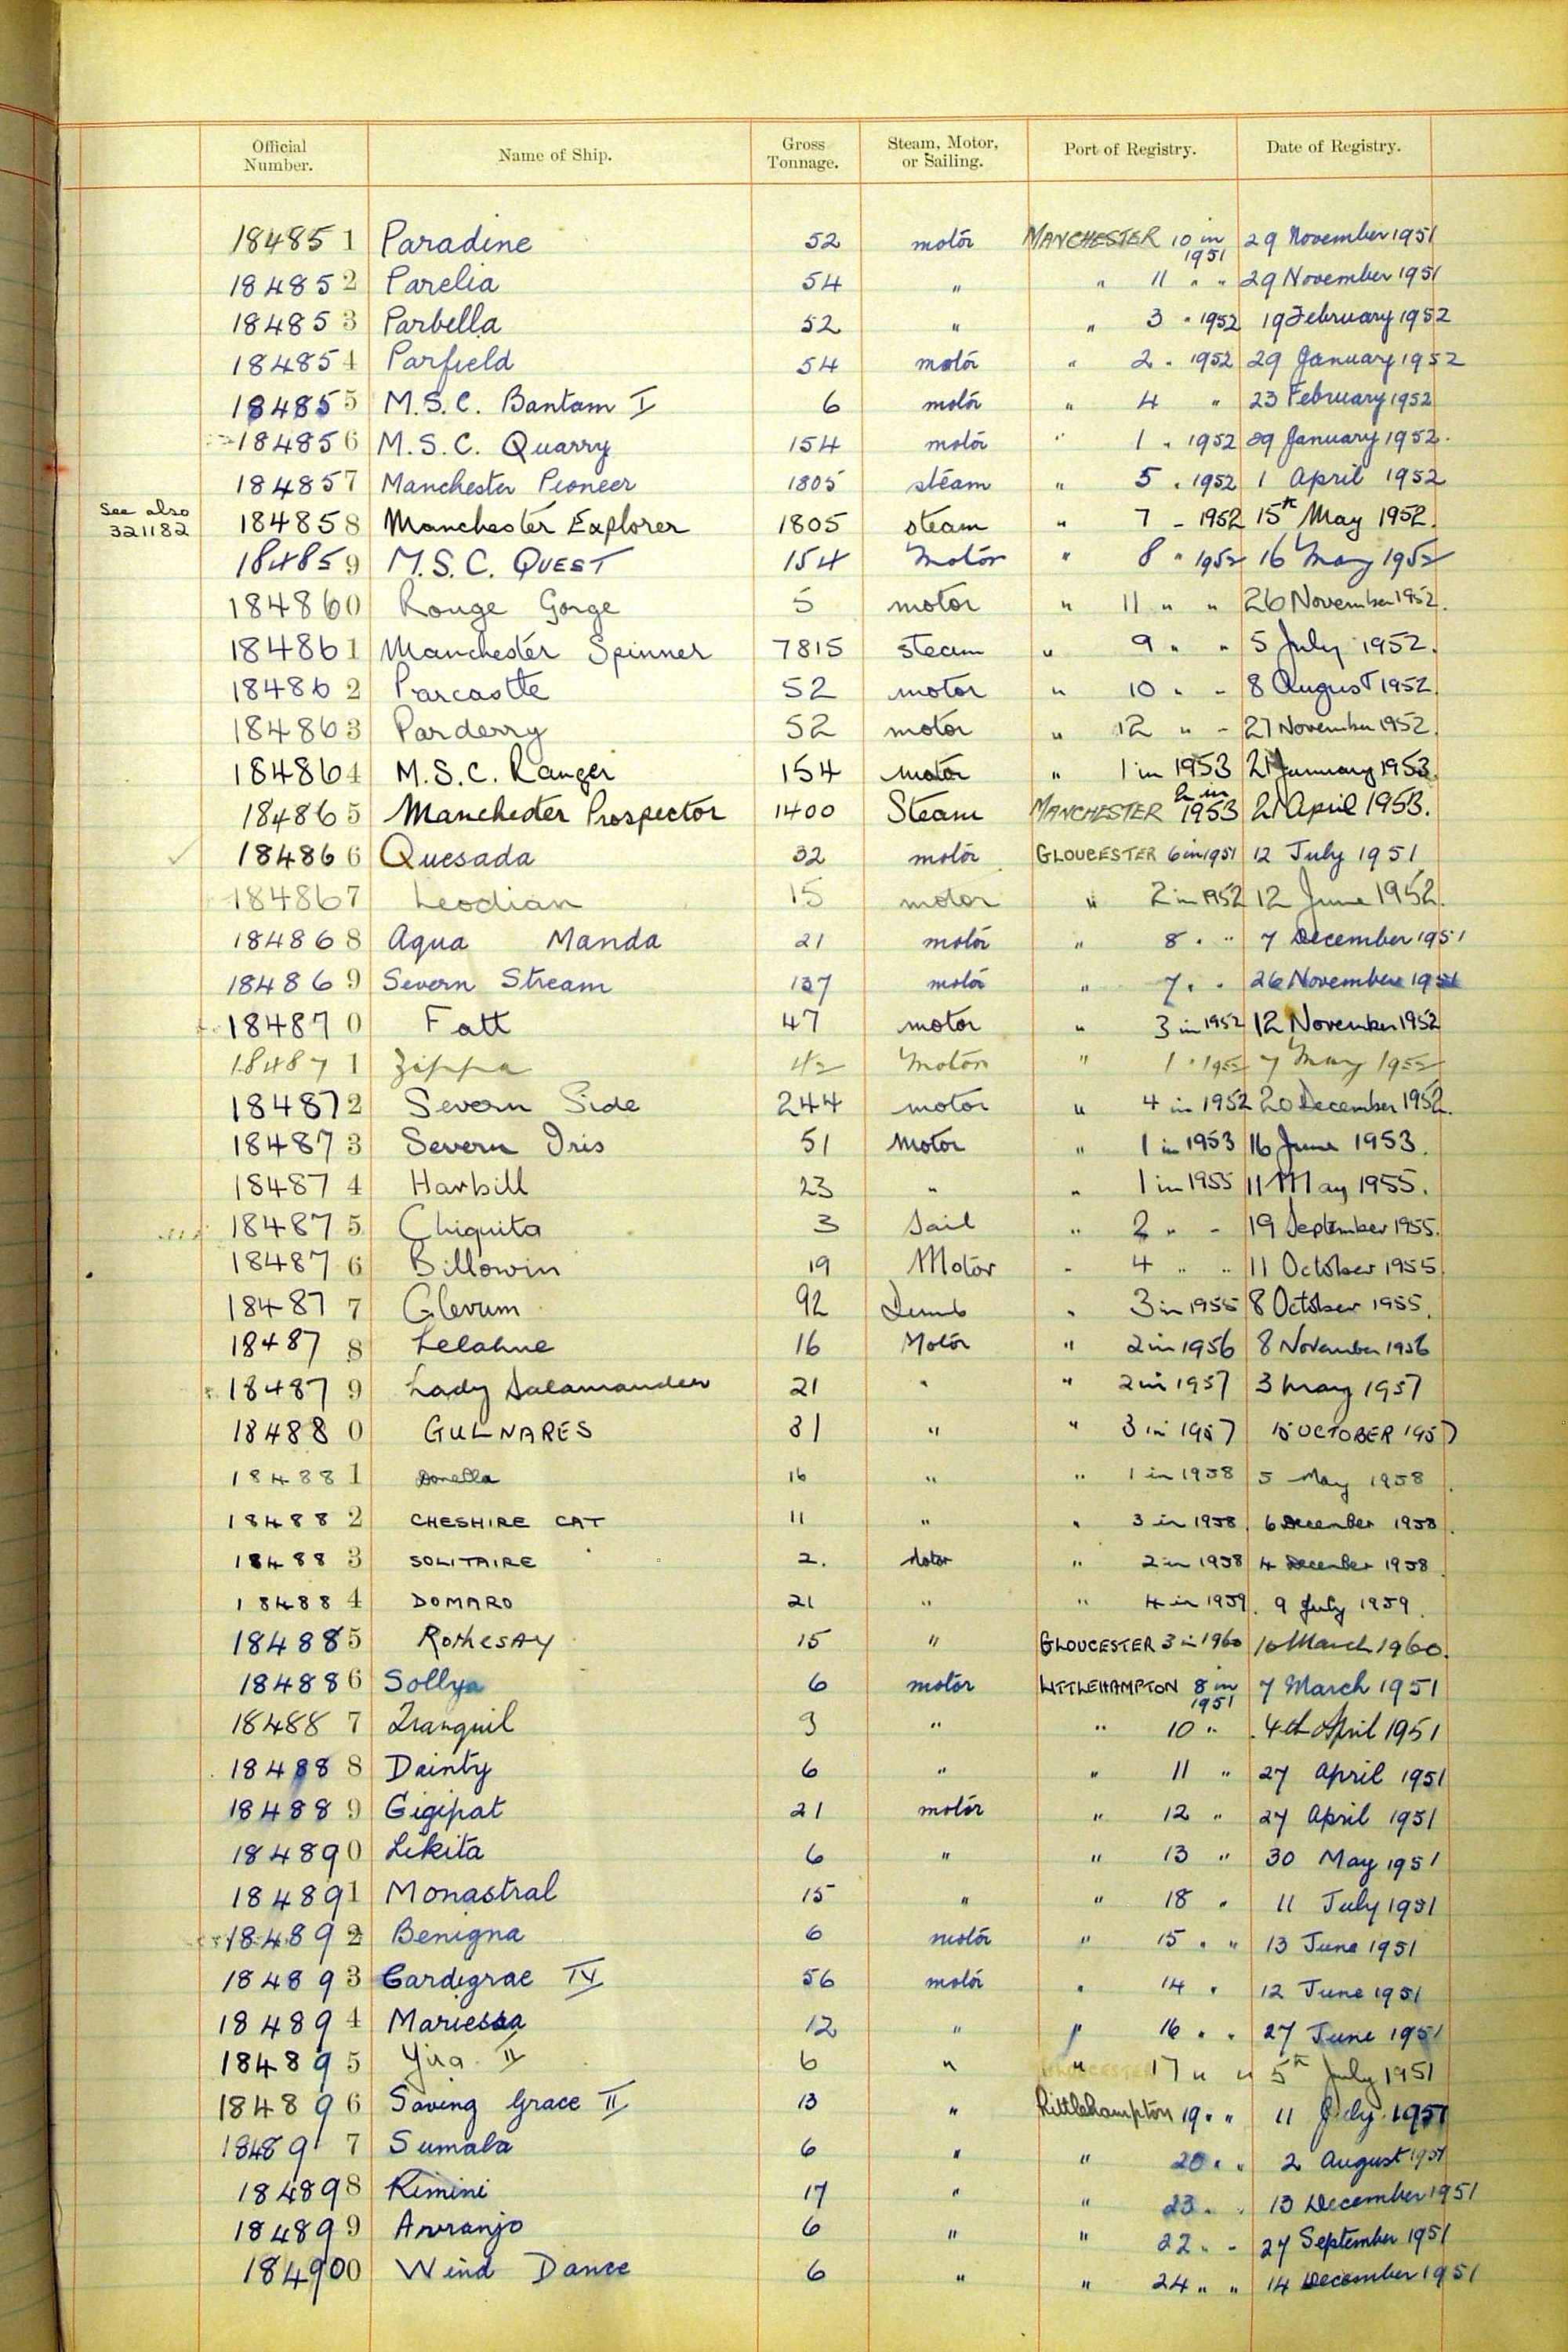 Official Number. Name of Ship. Gross Tonnage. Steam, Motor, or Sailing. Port of Registry. Date of Registry.
184851 Paradine 52 motor MANCHESTER 10 in 1951 29 November 1951
184852 Parelia 54 " " 11 " " 29 November 1951
184853 Parbella 52 " " 3 " 1952 19 February 1952
184854 Parfield 54 motor " 2 " 1952 29 January 1952
184855 M.S.C. Bantam I 6 motor " 4 " 23 February 1952
184856 M.S.C. Quarry 154 motor " 1 " 1952 29 January 1952.
184857 Manchester Pioneer 1805 steam " 5 " 1952 1 April 1952
See also 321182 184858 Manchester Explorer 1805 steam " 7 - 1952 15th May 1952.
184859 M.S.C. QUEST 154 Motor " 8 " 1952 16 May 1952
184860 Rouge Gorge 5 motor " 11 " " 26 November 1952.
184861 Manchester Spinner 7815 steam " 9 " " 5 July 1952.
184862 Parcastle 52 motor " 10 " " 8 August 1952.
184863 Parderry 52 motor " 12 " " 27 November 1952.
184864 M.S.C. Ranger 154 motor " 1 in 1953 21 January 1953.
184865 Manchester Prospector 1400 Steam MANCHESTER 2 in 1953 21 April 1953.
184866 Quesada 32 motor GLOUCESTER 6 in 1951 12 July 1951
184867 Leodian 15 motor " 2 in 1952 12 June 1952.
184868 Aqua Manda 21 motor " 8 " " 7 December 1951
184869 Severn Stream 137 motor " 7 " " 26 November 1951
184870 Fatt 47 motor " 3 in 1952 12 November 1952
184871 Zippa 42 Motor " 1 " 1952 7 May 1952
184872 Severn Side 244 motor " 4 in 1952 20 December 1952.
184873 Severn Iris 51 Motor " 1 in 1953 16 June 1953.
184874 Harbill 23 " " 1 in 1955 11 May 1955.
184875 Chiquita 3 Sail " 2 " " 19 September 1955.
184876 Billowin 19 Motor " 4 " " 11 October 1955
184877 Glevum 92 Dumb " 3 in 1955 8 October 1955.
184878 Lelahne 16 Motor " 2 in 1956 8 November 1956
184879 Lady Salamander 21 " " 2 in 1957 3 May 1957
184880 GULNARES 31 " " 3 in 1957 15 OCTOBER 1957
184881 Donella 16 " " 1 in 1958 5 May 1958.
184882 CHESHIRE CAT 11 " " 3 in 1958. 6 December 1958.
184883 SOLITAIRE 2. Motor " 2 in 1958 4 December 1958.
184884 DOMARO 21 " " 4 in 1959. 9 July 1959.
184885 ROTHESAY 15 " GLOUCESTER 3 in 1960 10 March 1960.
184886 Sollya 6 motor LITTLEHAMPTON 8 in 1951 7 March 1951
184887 Tranquil 9 " " 10 " 4th April 1951
184888 Dainty 6 " " 11 " 27 April 1951
184889 Gigipat 21 motor " 12 " 27 April 1951
184890 Likita 6 " " 13 " 30 May 1951
184891 Monastral 15 " " 18 " 11 July 1951
184892 Benigna 6 motor " 15 " " 13 June 1951
184893 Cardigrae IV 56 motor " 14 " 12 June 1951
184894 Mariessa 12 " " 16 " " 27 June 1951
184895 II 6 " " 17 " " 5th July 1951
184896 Saving Grace II 13 " Littlehampton 19 " " 11 July 1951
184897 Sumala 6 " " 20 " " 2 August 1951
184898 Rimini 17 " " 23 " " 13 December 1951
184899 Arranjo 6 " " 22 " " 27 September 1951
184900 Wind Dance 6 " " 24 " " 14 December 1951